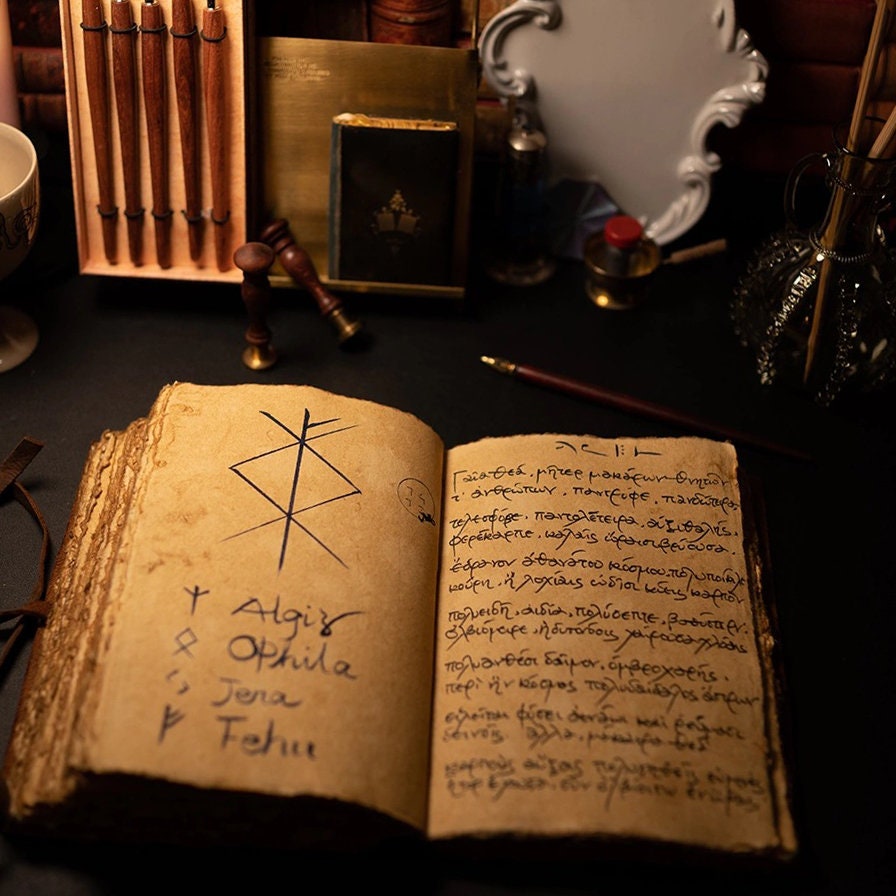 ᛉ Algiz
ᛟ Ophila
ᛃ Jera
ᚠ Fehu
Γαῖα θεά, μῆτερ μακάρων θνητῶν
τ' ἀνθρώπων, παντρόφε, πανδώτειρα,
τελεσφόρε, παντολέτειρα, αὐξιθαλής,
φερέκαρπε, καλαῖς ὥραισι βρύουσα,
ἕδρανον ἀθανάτου κόσμου, πολυποίκιλε
κούρη, ἣ λοχίαις ὠδῖσι κύεις καρπὸν
πολυειδῆ, ἀιδία, πολύσεπτε, βαθύστερν',
ὀλβιόμοιρε, ἡδυπνόοις χαίρουσα χλόαις
πολυανθέσι δαῖμον, ὀμβροχαρής,
περὶ ἣν κόσμος πολυδαίδαλος ἄστρων
εἱλεῖται φύσει ἀενάῳ καὶ ῥεύμασι
δεινοῖς. ἀλλά, μάκαιρα θεά
καρποὺς αὔξοις
ἔχουσα, σὺν